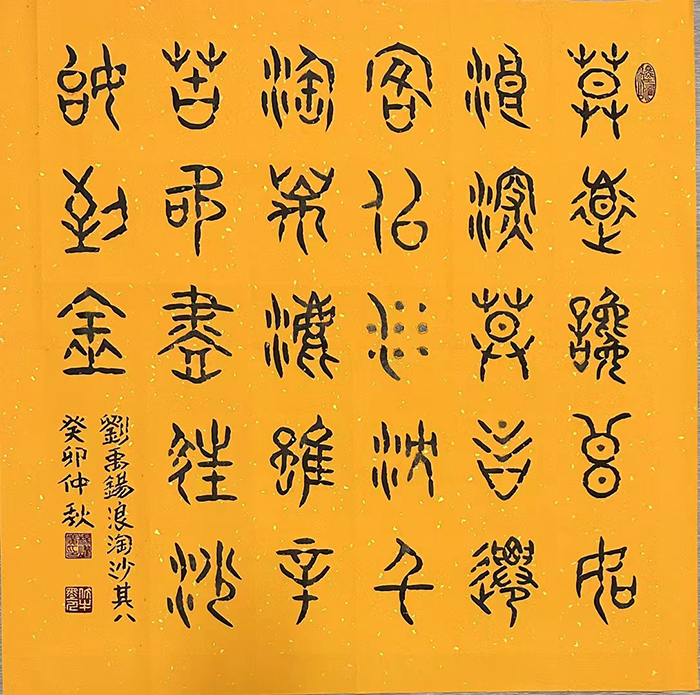 莫道讒言如
浪深莫言遷
客似沙沉千
淘萬漉雖辛
苦吹盡狂沙
始到金
劉禹錫浪淘沙其八
癸卯仲秋